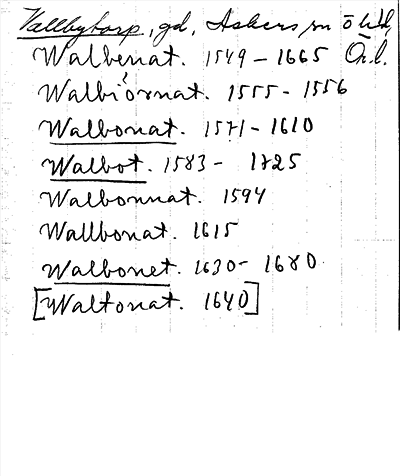 Vallbytorp, gd, Askers sn ö hd,
Walbenat. 1549 - 1665 Ö.l.
Walbiörnat. 1555 - 1556
Walbonat. 1571 - 1610
Walbot. 1583 - 1725
Walbonnat. 1594
Wallbonat. 1615
Walbonet. 1630 - 1680
[Waltonat. 1640]